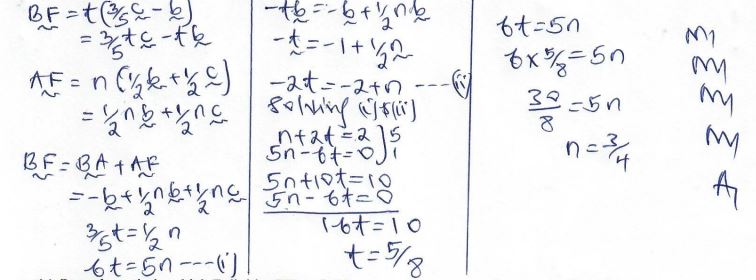 BF = t(3/5 c - b)
= 3/5 tc - tb
AF = n(1/2 b + 1/2 c)
= 1/2 nb + 1/2 nc
BF = BA + AF
= -b + 1/2 nb + 1/2 nc
3/5 t = 1/2 n
6t = 5n ---(i)
-tb = -b + 1/2 nb
-t = -1 + 1/2 n
-2t = -2 + n ---(ii)
Solving (i) & (ii)
n + 2t = 2 ] 5
5n - 6t = 0 ] 1
5n + 10t = 10
5n - 6t = 0
16t = 10
t = 5/8
6t = 5n
6 x 5/8 = 5n
30/8 = 5n
n = 3/4
M1
M1
M1
M1
A1